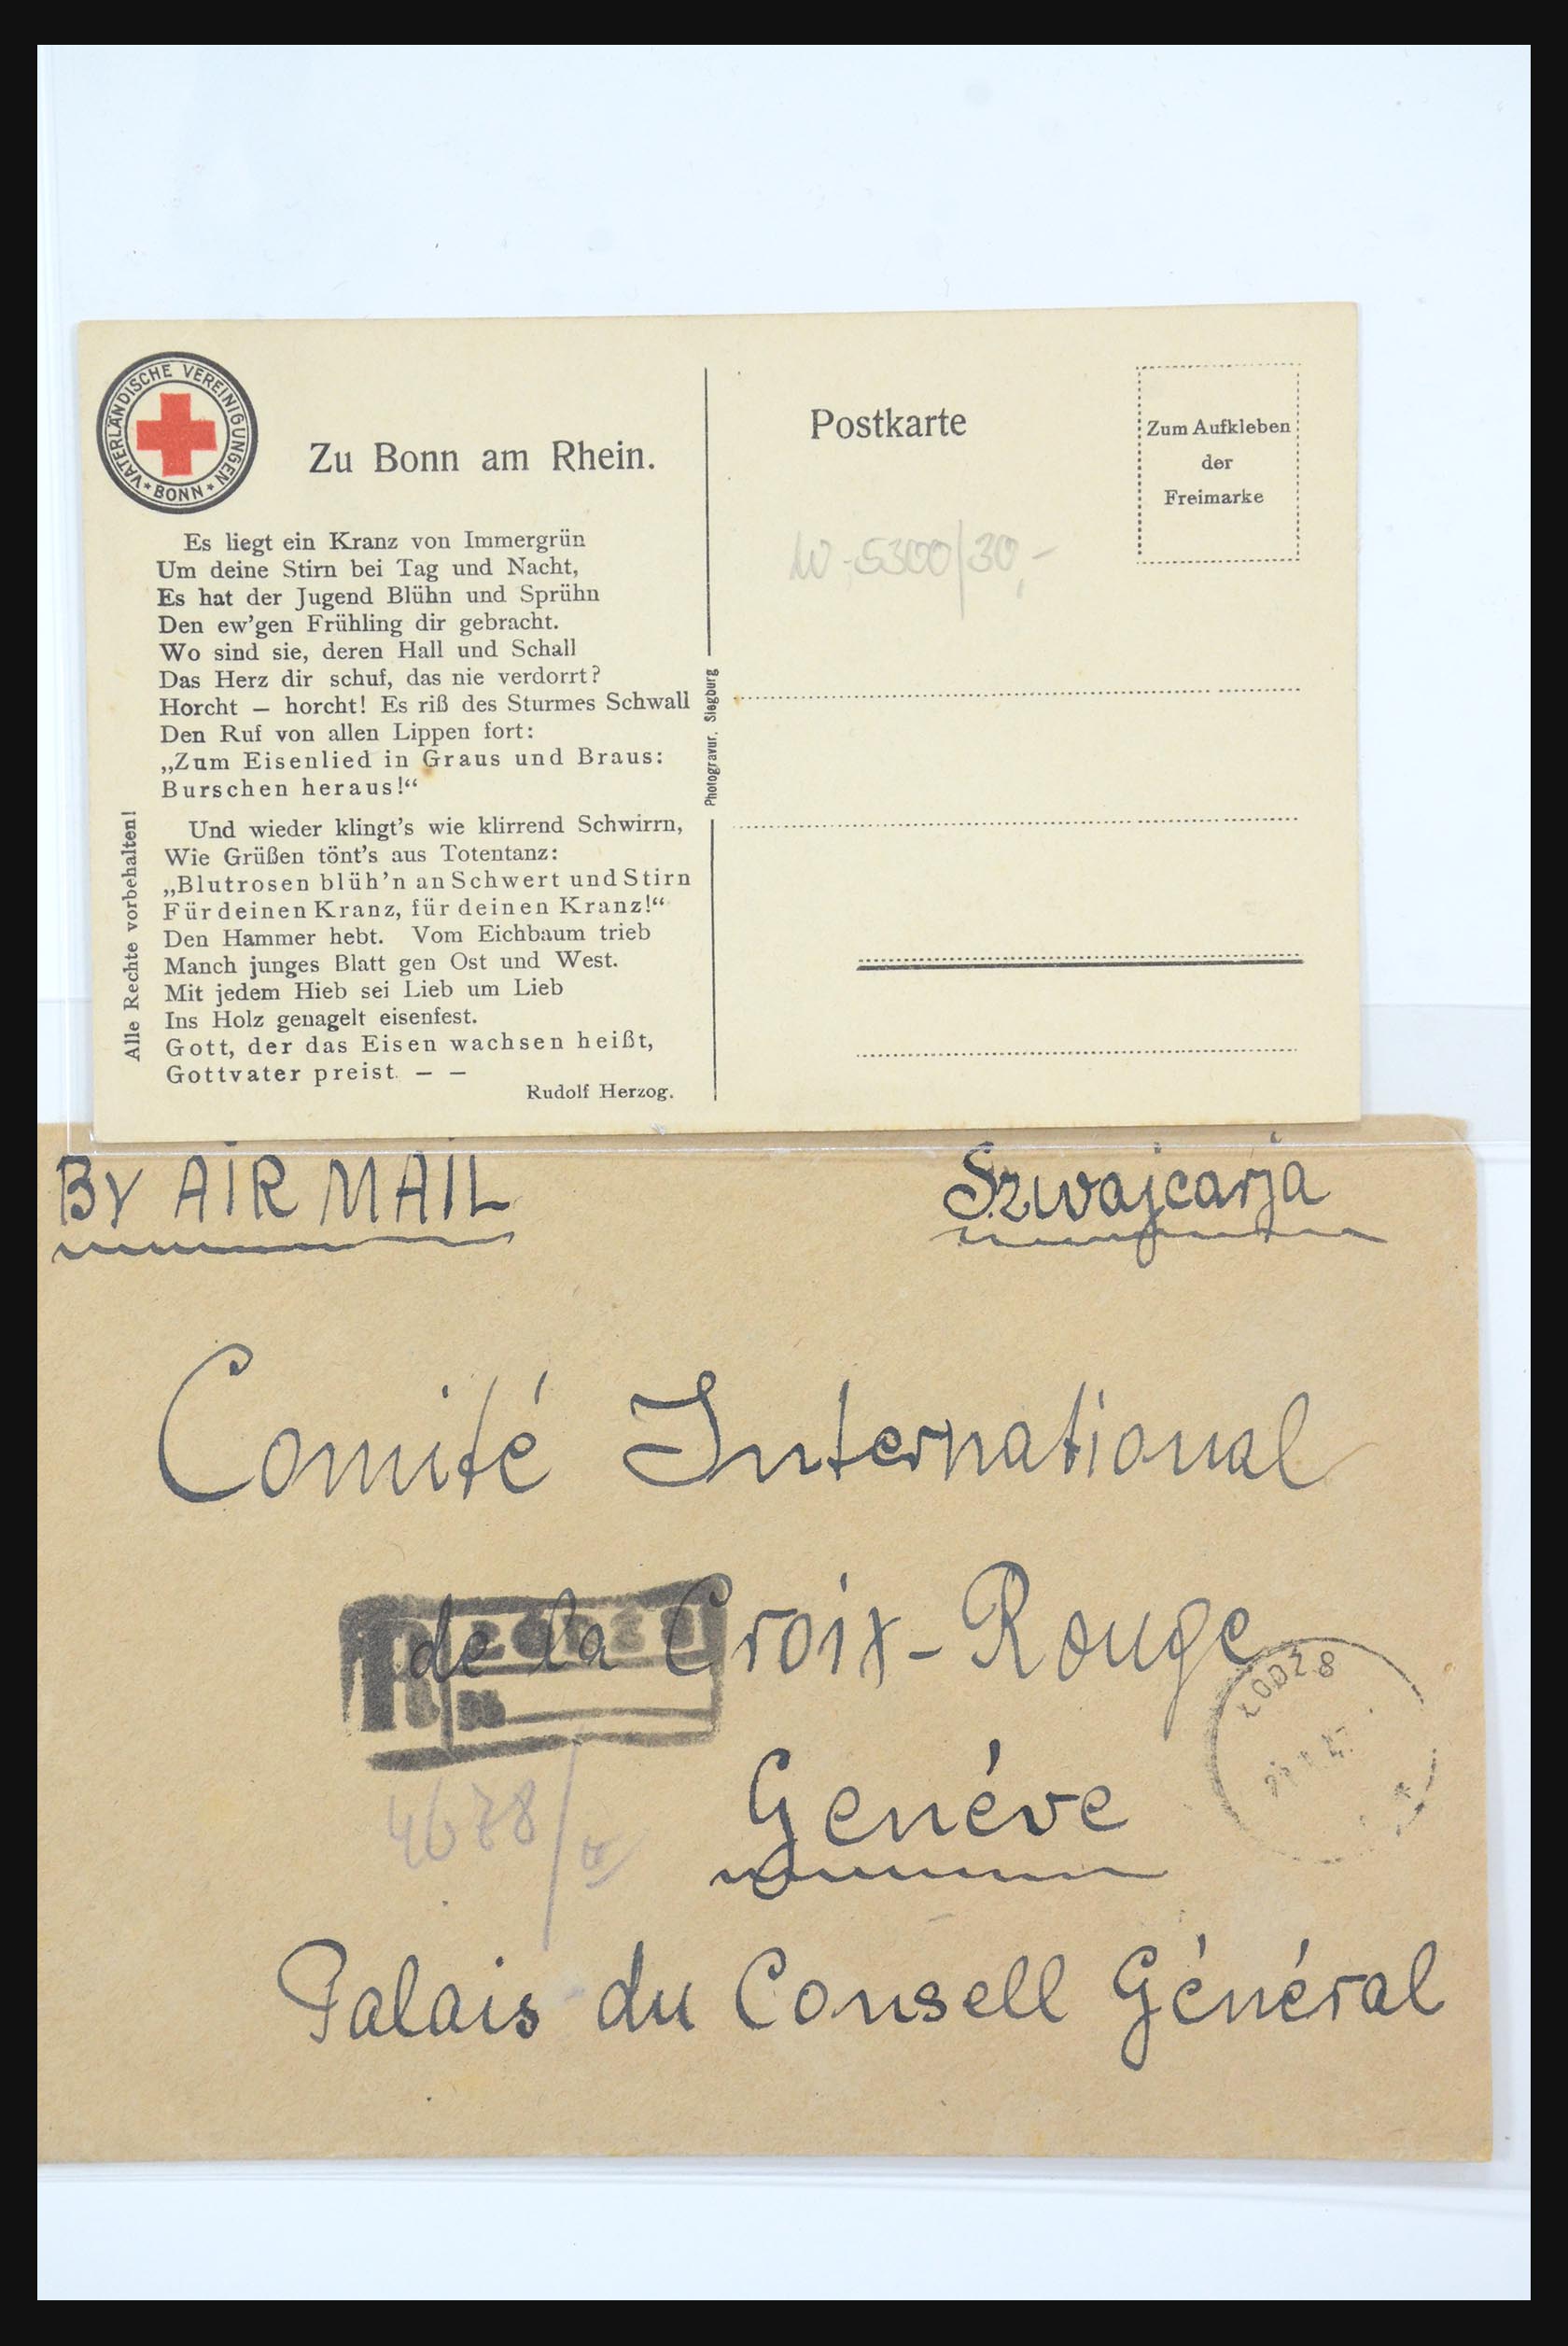 VATERLÄNDISCHE VEREINIGUNGEN
* BONN *
Zu Bonn am Rhein.
Es liegt ein Kranz von Immergrün
Um deine Stirn bei Tag und Nacht,
Es hat der Jugend Blühn und Sprühn
Den ew'gen Frühling dir gebracht.
Wo sind sie, deren Hall und Schall
Das Herz dir schuf, das nie verdorrt?
Horcht — horcht! Es riß des Sturmes Schwall
Den Ruf von allen Lippen fort:
„Zum Eisenlied in Graus und Braus:
Burschen heraus!“
Und wieder klingt's wie klirrend Schwirrn,
Wie Grüßen tönt's aus Totentanz:
„Blutrosen blüh'n an Schwert und Stirn
Für deinen Kranz, für deinen Kranz!“
Den Hammer hebt. Vom Eichbaum trieb
Manch junges Blatt gen Ost und West.
Mit jedem Hieb sei Lieb um Lieb
Ins Holz genagelt eisenfest.
Gott, der das Eisen wachsen heißt,
Gottvater preist — —
Rudolf Herzog.
Alle Rechte vorbehalten!
Photogravur. Siegburg
Postkarte
Zum Aufkleben
der
Freimarke
5300/30,-
BY AIR MAIL
Szwajcarja
Comité International
de la Croix-Rouge
R
ŁÓDŹ 8
Genéve
4678/
Palais du Consell Général